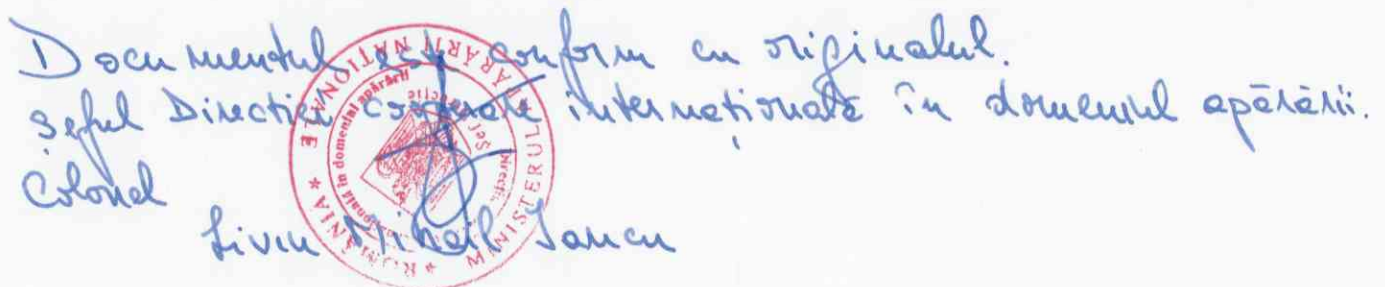 Documentul este conform cu originalul.
Șeful Direcției cooperare internațională în domeniul apărării.
Colonel
Liviu Mihail Iancu
* ROMÂNIA * MINISTERUL APĂRĂRII NAȚIONALE
internațională în domeniul apărării
Șef direcție